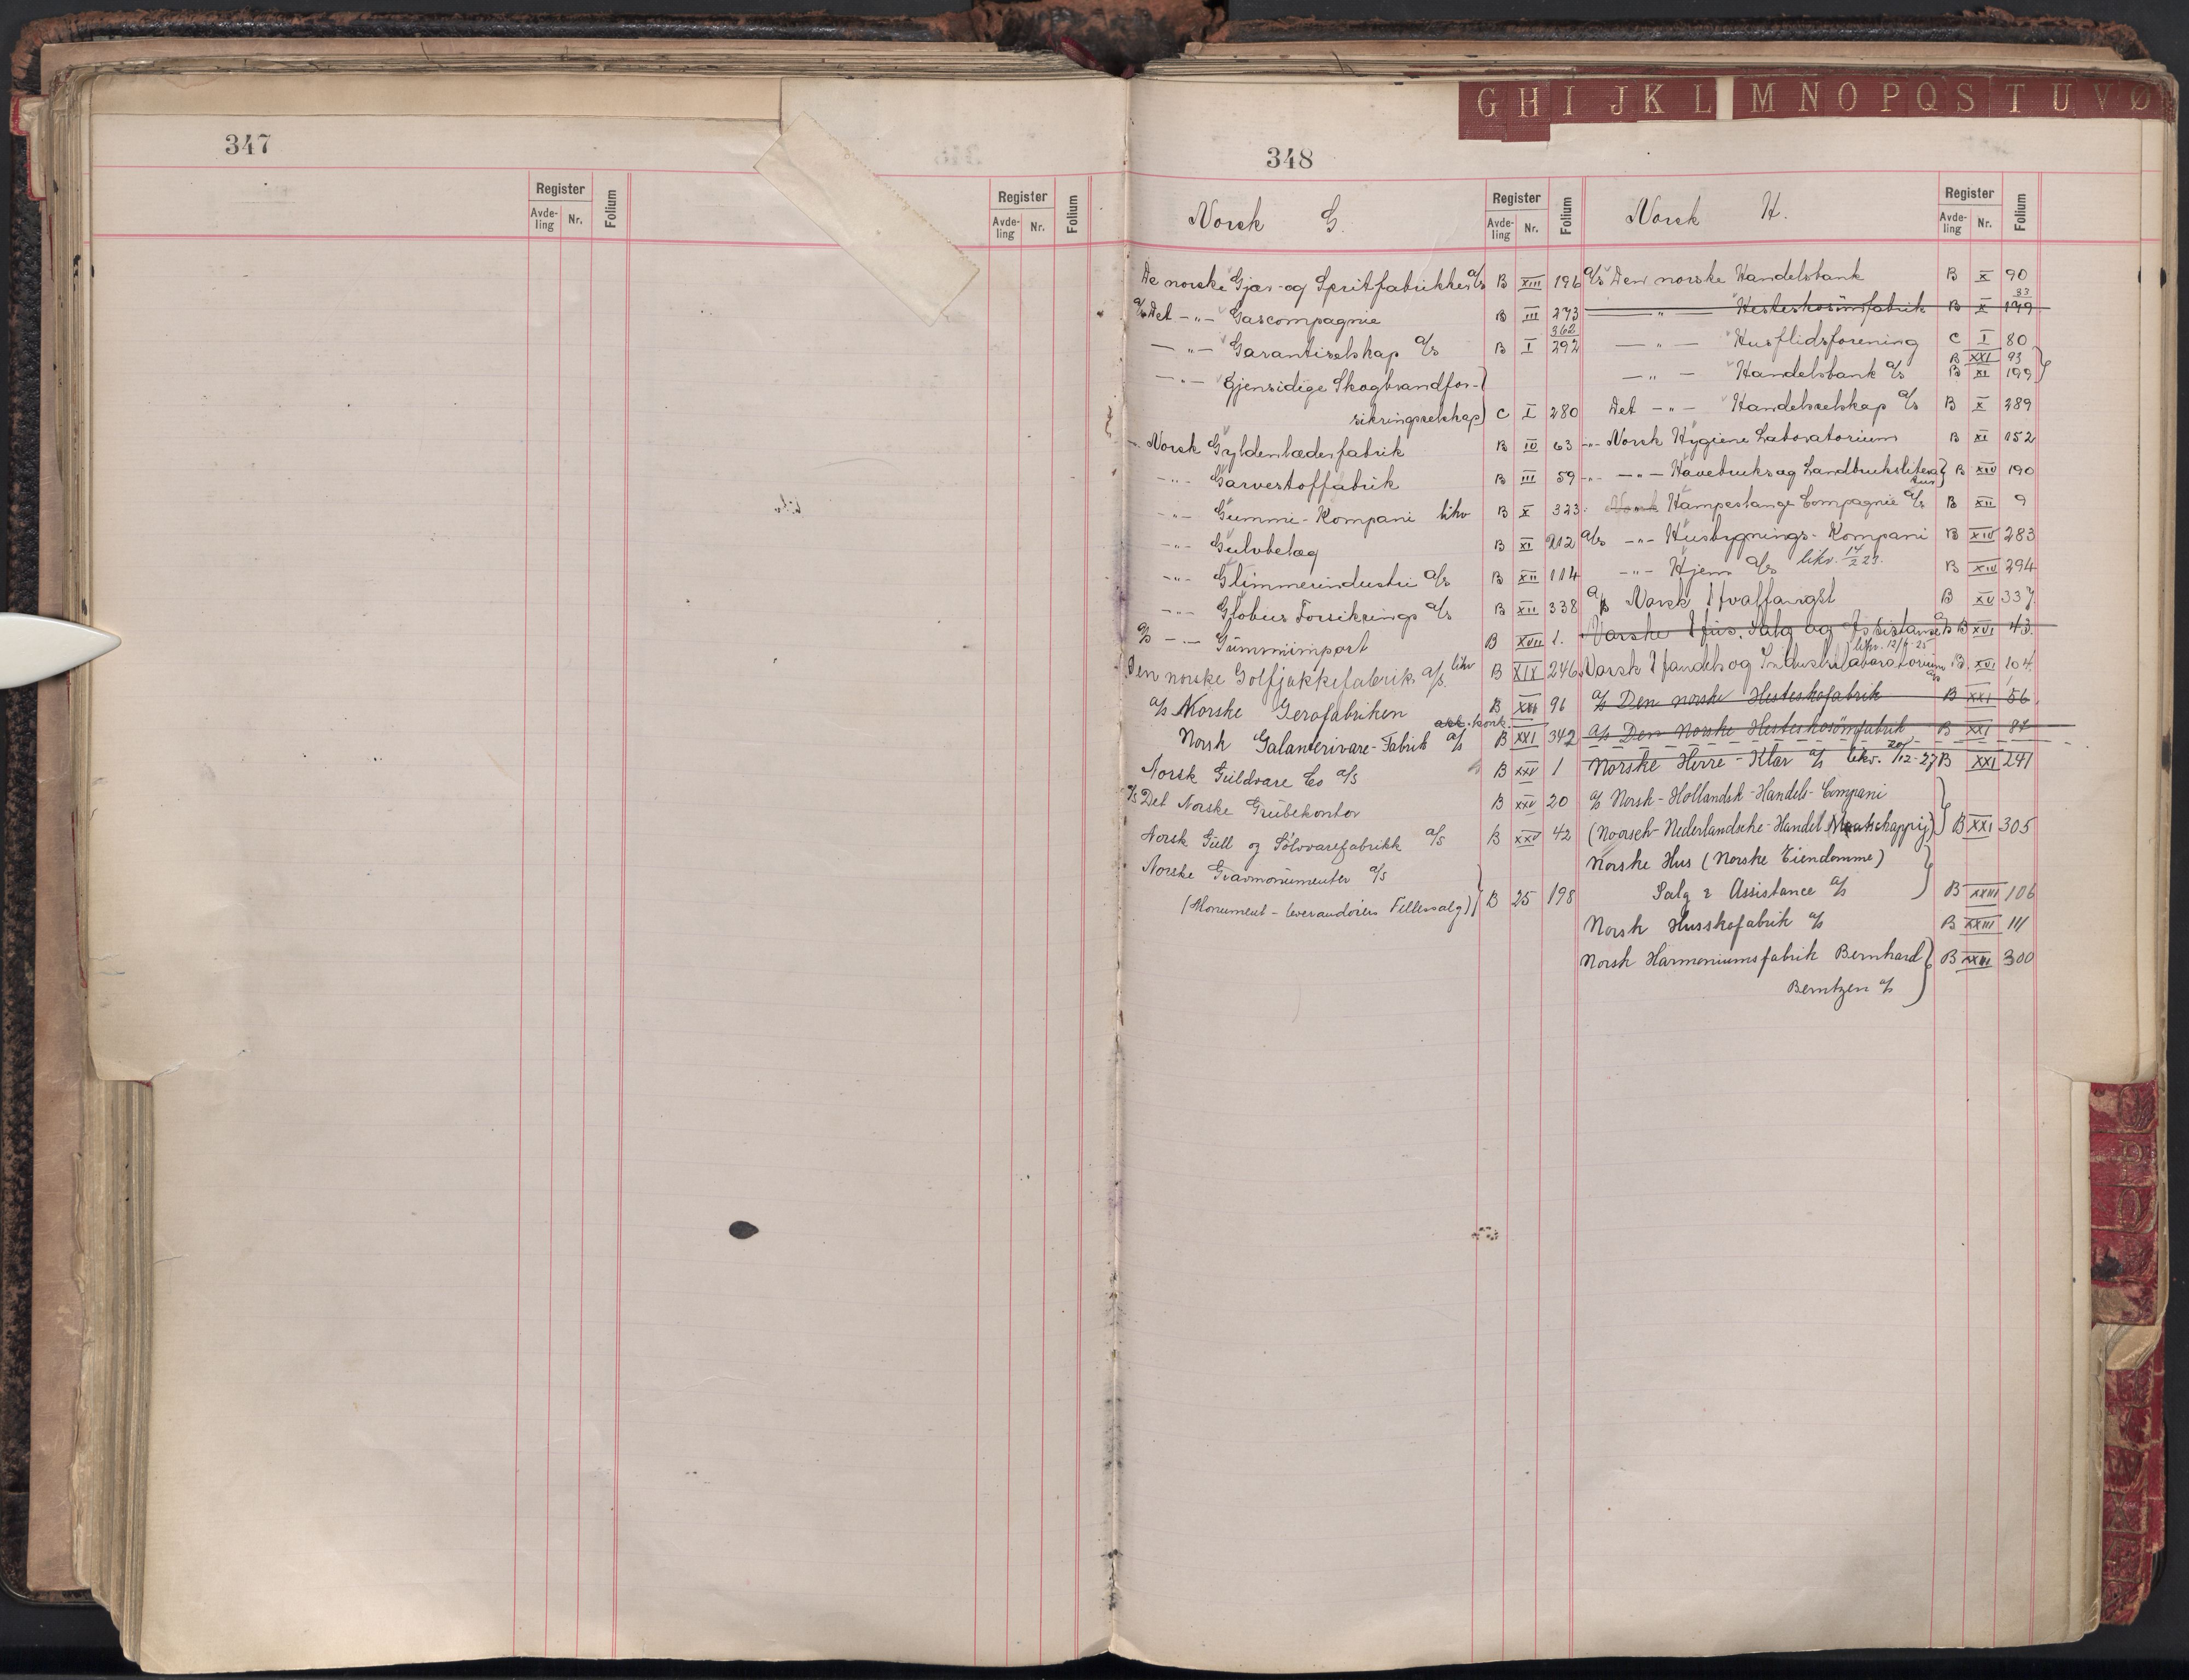 G H I J K L M N O P Q S T U V Ø
347
Register Folium Register Folium
Avde-ling Nr. Avde-ling Nr.
348
Norsk G.
Register Folium
Avde-ling Nr.
De norske Gjær- og Spritfabrikker a/s B XIII 196
a/s Det -"- Gascompagnie B III 273
362
-"- Garantiselskap a/s B I 292
-"- Gjensidige Skogbrandfor-
sikringsselskap C I 280
-"- Norsk Gyldenlæderfabrik B IV 63
-"- Garvestoffabrik B III 59
-"- Gummi-Kompani likv B X 323
-"- Gulvbelæg B XI 212
-"- Glimmerindustri a/s B XII 114
-"- Globus Forsikrings a/s B XII 338
a/s -"- Gummiimport B XVII 1.
Den norske Golfjakkefabrik a/s. likv B XIX 246
a/s Norske Gerofabriken B XXI 96
akk. konk.
Norsk Galanterivare-Fabrik a/s B XXI 342
Norsk Guldvare Co a/s B XXV 1
a/s Det Norske Grubekontor B XXV 20
Norsk Gull og Sølvvarefabrikk a/s B XXV 42
Norske Gravmonumenter a/s
(Monument-leverandørers Fellessalg) B 25 198
Norsk H.
Register Folium
Avde-ling Nr.
a/s Den norske Handelsbank B X 90
33
-"- Hesteskosömfabrik B X 149
-"- Husflidsforening C I 80
B XXI 93
-"- Handelsbank a/s B XI 199
Det -"- Handelsselskap a/s B X 289
-"- Norsk Hygiene Laboratorium B XI 152
-"- -"- Havebruks og Landbrukslitera B XIV 190
tur
Norsk Hampeslange Compagnie a/s B XII 9
a/s -"- Husbygnings-Kompani B XIV 283
-"- Hjem a/s likv. 14/2 23. B XIV 294
a/s Norsk Hvalfangst B XV 337
Norske Hus. Salg og Assistanse a/s B XVI 43.
likv. 12/9-25
Norsk Handels og Industrilaboratorium a/s B. XVI 104.
a/s Den norske Hesteskofabrik B XXI 56.
a/s Den Norske Hesteskosömfabrik B XXI 87
Norske Herre-Klær a/s likv. 20/12-27 B XXI 241
a/s Norsk-Hollandsk-Handels-Compani
(Noorsch-Nederlandsche-Handel Maatschappij) B XXI 305
Norske Hus (Norske Eiendomme)
Salg & Assistance a/s B XXIII 106
Norsk Husskofabrik a/s B XXIII 111
Norsk Harmoniumsfabrik Bernhard B XXIII 300
Berntzen a/s